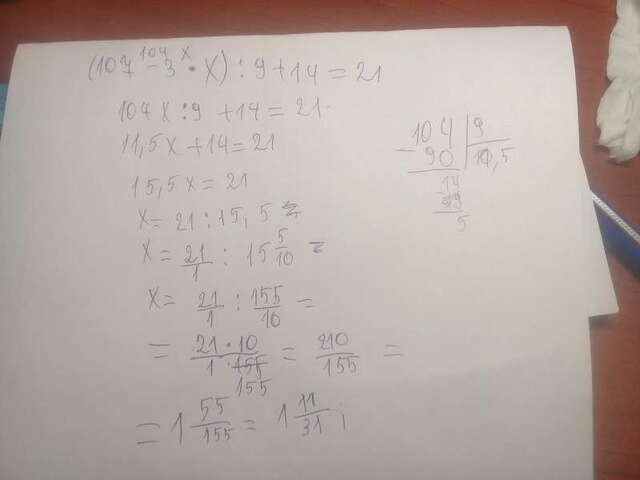 104 x
(107 - 3 · x) : 9 + 14 = 21
104x : 9 + 14 = 21
11,5x + 14 = 21
15,5x = 21
x = 21 : 15,5 =
x = 21/1 : 15 5/10 =
x = 21/1 : 155/10 =
= 21 · 10 / 1 · 155 = 210/155 =
155
= 1 55/155 = 1 11/31 ;
104 | 9
- 90 | 11,5
14
- 9
5